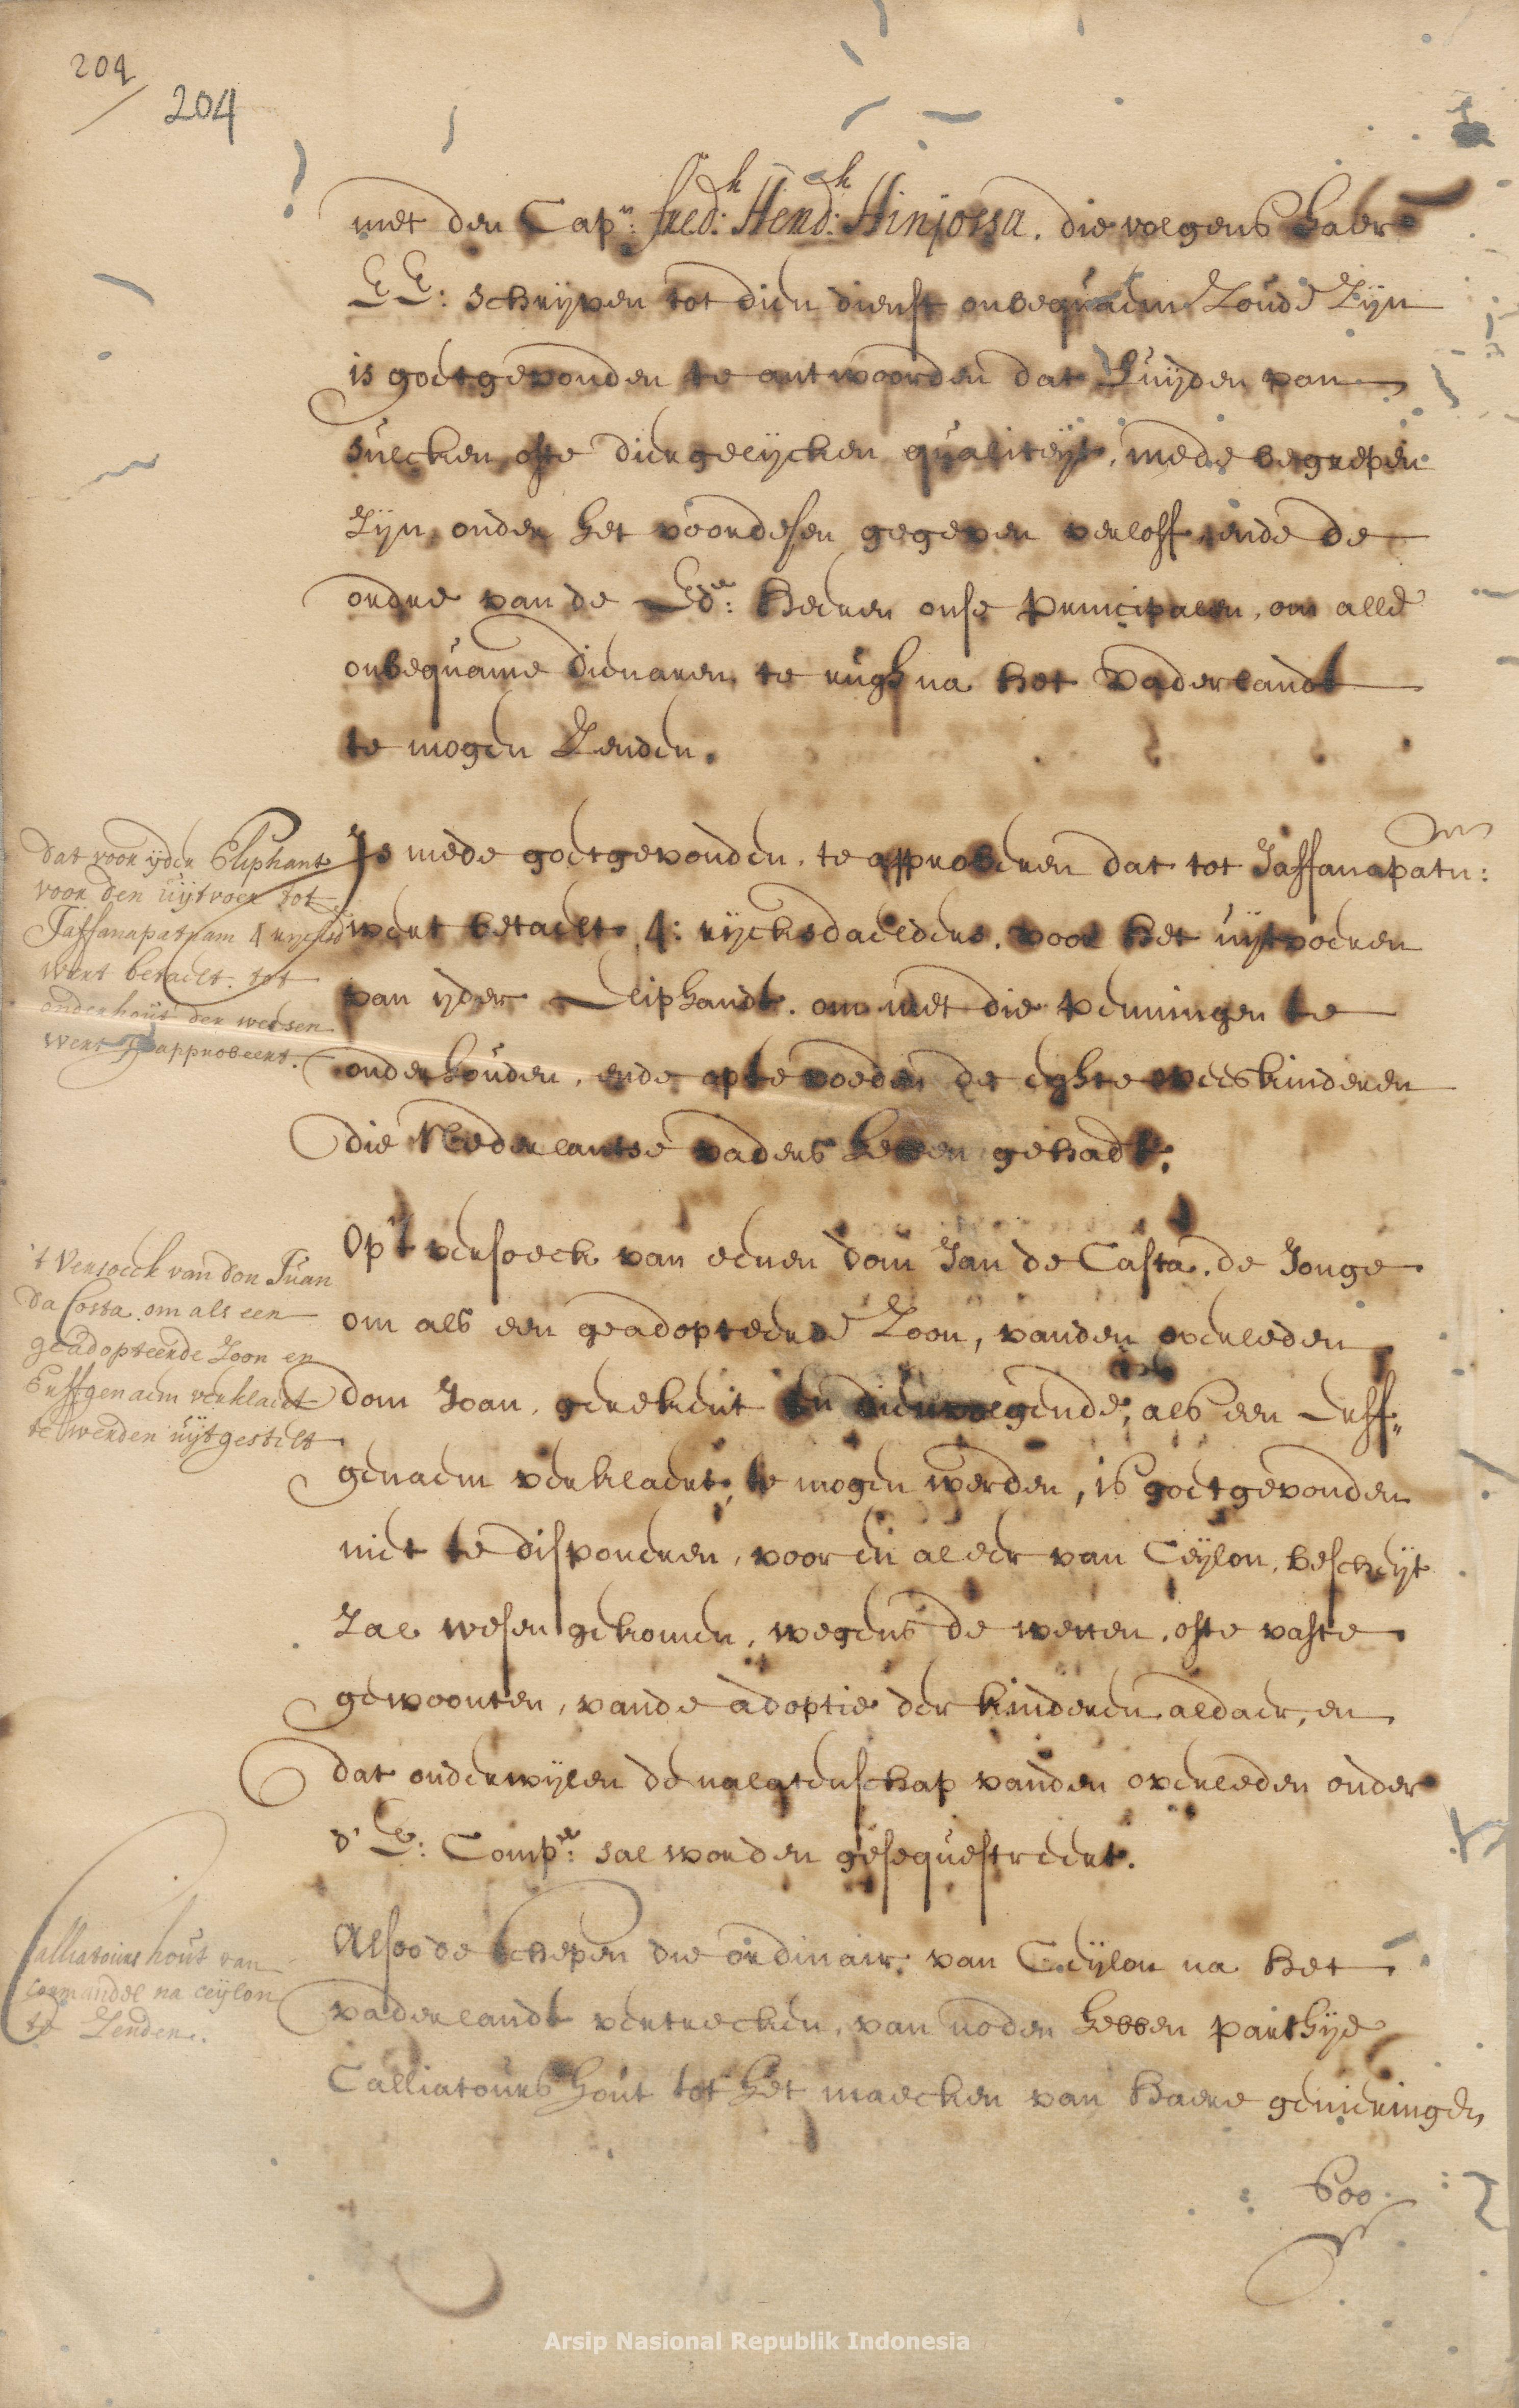 204
204
met den Capn: fredh: Hendk: Hinjossa. die volgens haer
EE: schrijven tot dien dienst onbequaem Zoude Zijn
is goetgevonden te antwoorden dat Luijden van
sulcken, ofte diergelijcken qualiteijt, mede begrepen
Zijn, onder het voordesen gegeven verloff, ende de
ordre van de Ede: heeren onse principalen, om alle
onbequame dienaren te rugh na het vaderlandt
te mogen Zenden.
dat voor ijder Eliphant
voor den uijtvoer tot
Jaffanapatnam 4 rijcxds
wert betaelt. tot
onderhout der weesen
wert geapprobeert.
Is mede goetgevonden, te approberen dat tot Jaffanapatn:m
wert betaelt 4: rijcksdaelders, voor het uijtvoeren
van ijder Eliphandt. om met die penningen te
onderhouden, ende op te voeden de eghte weeskinderen
die Nederlantse vaders hebben gehadt.
't Versoeck van don Juan
Da Costa om als een
geadopteerde Zoon en
Erffgenaem verklaert
te werden uijtgestelt
Op 't versoeck van eenen dom Jan de Casta. de Jonge
om als een geadopteerde Zoon, vanden overleden
dom Joan, gerekent en dienvolgende, als een Erff„
genaem verklaert, te mogen werden, is goetgevonden
niet te disponeren, voor en aleer van Ceijlon, bescheijt
Zal wesen gekomen, wegens de wetten, ofte vaste
gewoonten, vande adoptie der kinderen aldaer, en
dat onderwijlen de nalatenschap vanden overleden onder
d' E: Compe: sal worden gesequestreert.
Calliatours hout van
Cormandel na ceijlon
te Zenden.
Alsoo de schepen die ordinair, van Ceijlon na het
vaderlandt vertrecken, van noden hebben parthije
Calliatours hout tot het maecken van haere garnieringen
Soo
Arsip Nasional Republik Indonesia